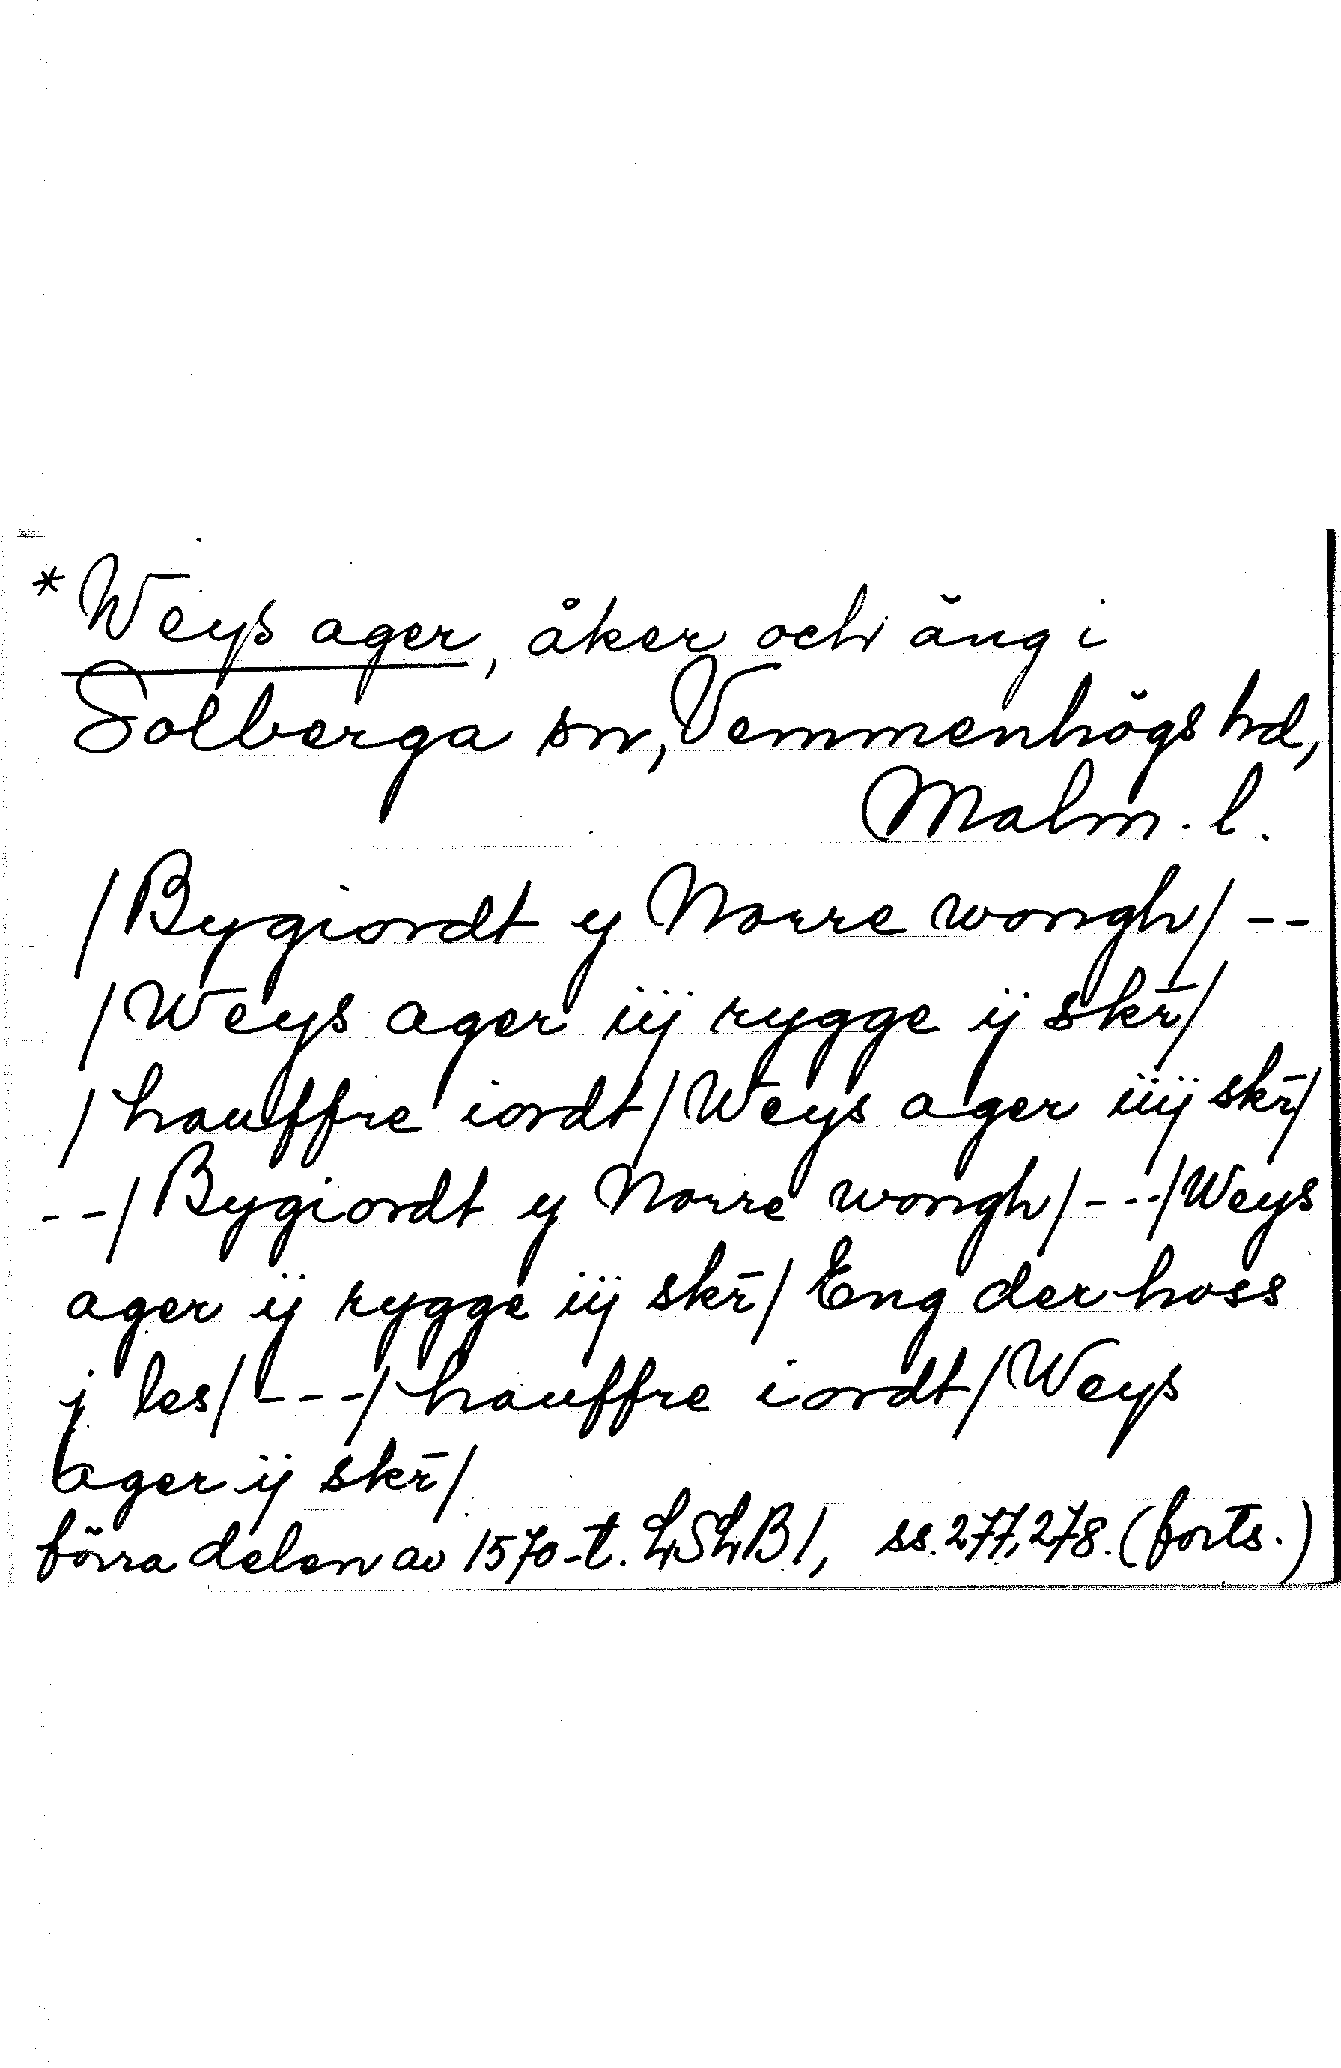 *Weys ager, åker och äng i
Solberga sn, Vemmenhögs hd,
Malm. l.
/Bygiordt y Norre wongh/ --
/Weys ager iij rygge ij skr̄/
/hauffre iordt/Weys ager iiij skr̄/
--/Bygiordt y Norre wongh/---/Weys
ager ij rygge iij skr̄/Eng der hoss
j les/---/hauffre iordt/Weys
ager ij skr̄/
förra delen av 1570-t. LSLB1, ss. 277, 278. (forts.)